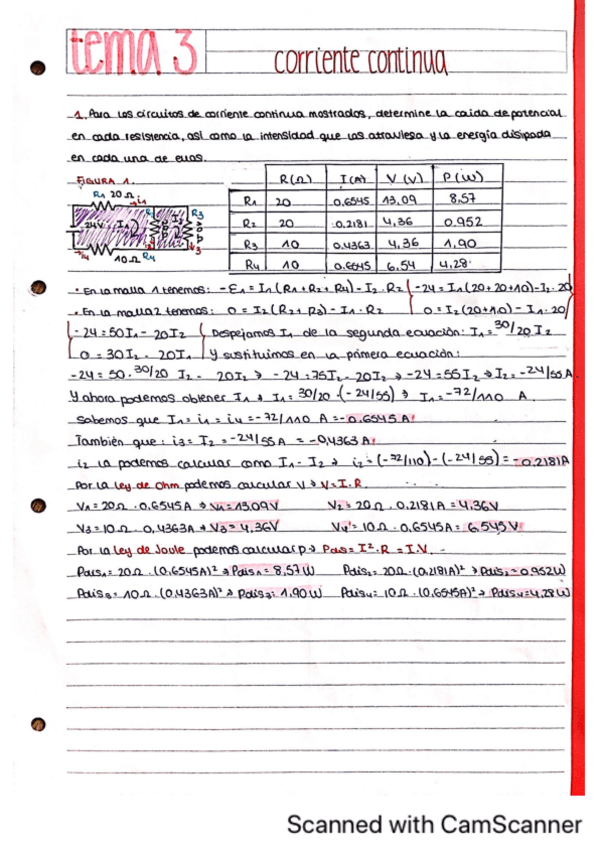 tema 3 corriente continua
1. Para los circuitos de corriente continua mostrados, determine la caída de potencial
en cada resistencia, así como la intensidad que las atraviesa y la energía disipada
en cada una de ellas.
FIGURA 1.
R1 20Ω i1
24V I1 R2 I2 R3
i4 10Ω R4 i3
R(Ω) I(A) V (V) P(W)
R1 20 0,6545 13,09 8,57
R2 20 0,2181 4,36 0,952
R3 10 0,4363 4,36 1,90
R4 10 0,6545 6,54 4,28
• En la malla 1 tenemos: -ε1 = I1(R1+R2+R4) - I2·R2 { -24 = I1(20+20+10) - I2·20
• En la malla 2 tenemos: 0 = I2(R2+R3) - I1·R2 { 0 = I2(20+10) - I1·20
{ -24 = 50I1 - 20I2 { Despejamos I1 de la segunda ecuación: I1 = 30/20 I2
0 = 30I2 - 20I1 Y sustituimos en la primera ecuación:
-24 = 50·30/20 I2 - 20I2 → -24 = 75I2 - 20I2 → -24 = 55I2 → I2 = -24/55 A
Y ahora podemos obtener I1 → I1 = 30/20 · (-24/55) → I1 = -72/110 A.
Sabemos que I1 = i1 = i4 = -72/110 A = -0,6545 A
También que: i3 = I2 = -24/55 A = -0,4363 A
i2 la podemos calcular como I1 - I2 → i2 = (-72/110) - (-24/55) = -0,2181A
Por la Ley de Ohm podemos calcular V → V = I·R.
V1 = 20Ω · 0,6545A → V1 = 13,09V V2 = 20Ω · 0,2181A = 4,36V
V3 = 10Ω · 0,4363A → V3 = 4,36V V4 = 10Ω · 0,6545A = 6,545V
Por la Ley de Joule podemos calcular p → Pdis = I²·R = I·V.
Pdis1 = 20Ω · (0,6545A)² → Pdis1 = 8,57W Pdis2 = 20Ω · (0,2181A)² → Pdis2 = 0,952W
Pdis3 = 10Ω · (0,4363A)² → Pdis3 = 1,90W Pdis4 = 10Ω · (0,6545A)² → Pdis4 = 4,28W
Scanned with CamScanner